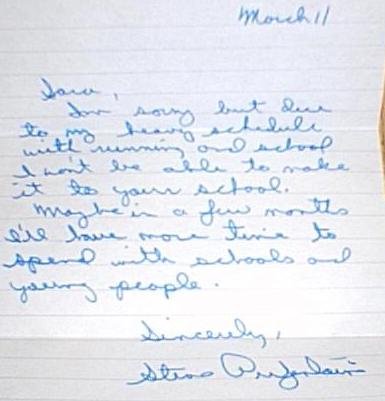 March 11
Sara,
I'm sorry but due
to my heavy schedule
with running and school
I won't be able to make
it to your school.
Maybe in a few months
I'll have more time to
spend with schools and
young people.
Sincerely,
Steve